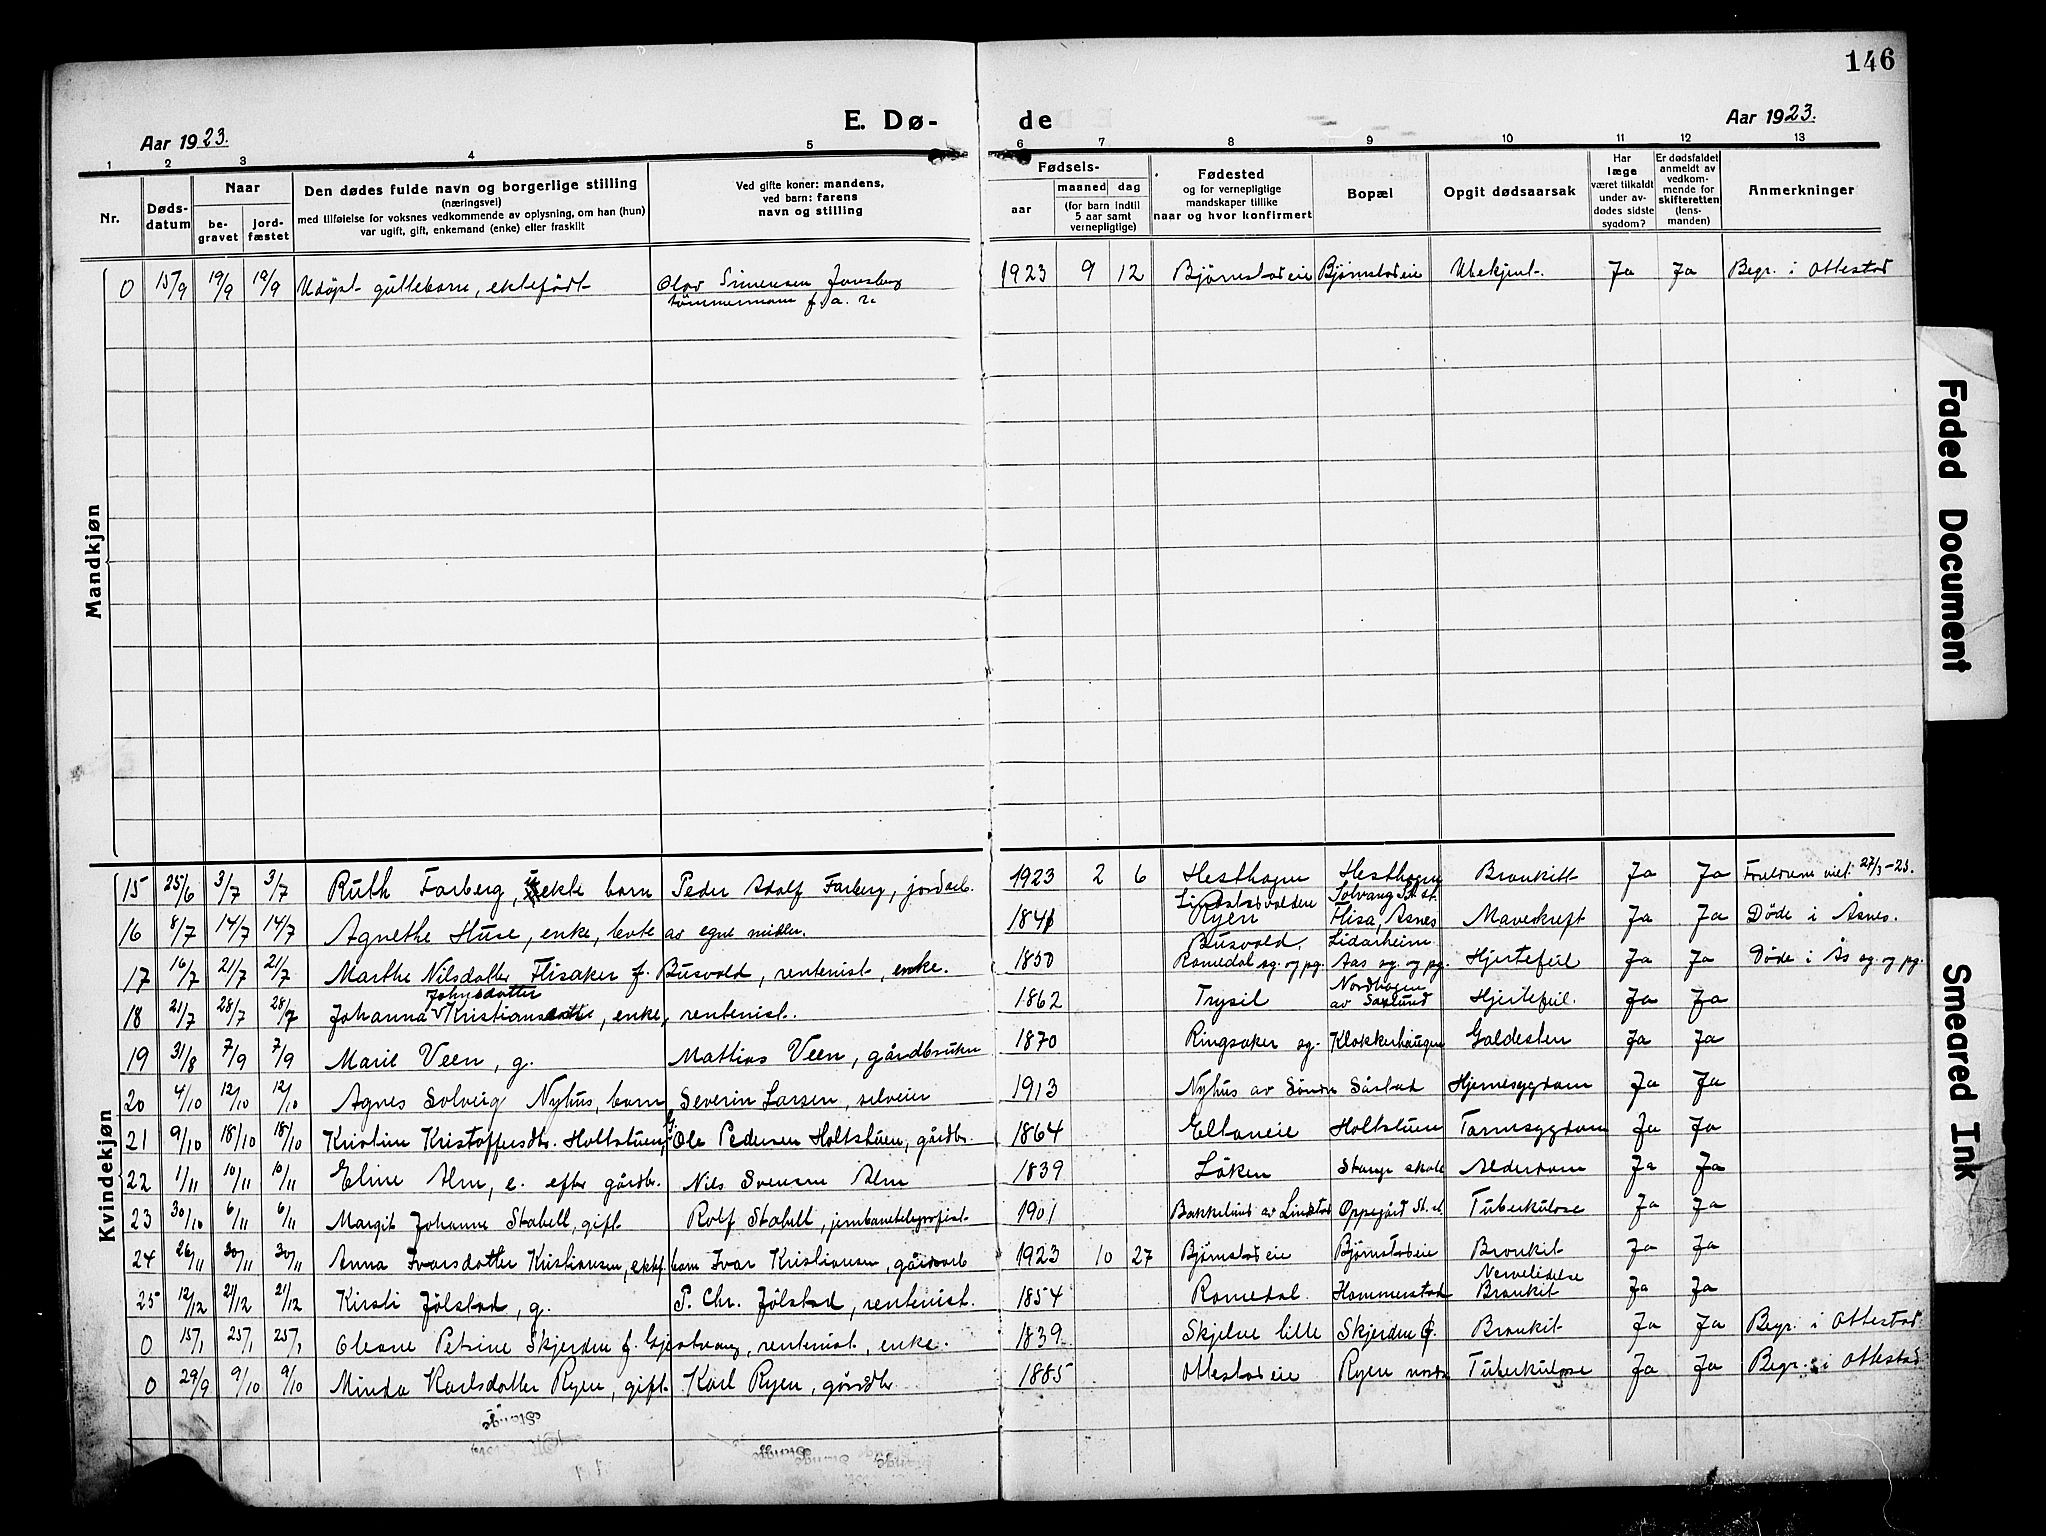 146
E. Dø- de
Aar 1923. Aar 1923.
1 2 3 4 5 6 7 8 9 10 11 12 13
Nr.
Døds-
datum
Naar
be-
gravet
jord-
fæstet
Den dødes fulde navn og borgerlige stilling
(næringsvei)
med tilføielse for voksnes vedkommende av oplysning, om han (hun)
var ugift, gift, enkemand (enke) eller fraskilt
Ved gifte koner: mandens,
ved barn: farens
navn og stilling
Fødsels-
aar
maaned dag
(for barn indtil
5 aar samt
vernepligtige)
Fødested
og for vernepligtige
mandskaper tillike
naar og hvor konfirmert
Bopæl
Opgit dødsaarsak
Har
læge
været tilkaldt
under av-
dødes sidste
sygdom?
Er dødsfaldet
anmeldt av
vedkom-
mende for
skifteretten
(lens-
manden)
Anmerkninger
Mandkjøn
0 15/9 19/9 19/9 Udøpt guttebarn, ektefødt Olav Simensen Jonsberg 1923 9 12 Bjørnstadeie Bjørnstadeie Ubekjent. Ja Ja Begr. i Ottestad
tømmermann f. a. n
Kvindekjøn
15 25/6 3/7 3/7 Ruth Farberg, uekte barn Peder Adolf Farberg, jordarb. 1923 2 6 Hesthagen Hesthagen Bronkitt Ja Ja Foreldrene viet 27/3-23.
16 8/7 14/7 14/7 Agnethe Huse, enke, levte av egne midler. 1841 Ryen Solvang St. st. Flisa, Åsnes Mavekreft Ja Ja Døde i Åsnes.
17 16/7 21/7 21/7 Marthe Nilsdatter Flisaker f. Busvold, rentenist, enke. 1850 Busvold. Romedal sg. og pg. Lidarheim Aas sg. og pg. Hjertefeil Ja Ja Døde i Ås sg. og pg.
18 21/7 28/7 28/7 Johanna Johnsdatter Kristiansen, enke, rentenist. 1862 Trysil Nordhagen av Saxlund Hjertefeil. Ja Ja
19 31/8 7/9 7/9 Marie Veen, g. Mattias Veen, gårdbruker 1870 Ringsaker sg. Klokkerhaugen Galdesten Ja Ja
20 4/10 12/10 12/10 Agnes Solveig Nyhus, barn Severin Larsen, selveier 1913 Nyhus av Søndre Sørstad Hjernesygdom Ja Ja
21 9/10 18/10 18/10 Kristine Kristoffersdtr. Holtstuen, g. Ole Pedersen Holtstuen, gårdbr. 1864 Eltoneie Holtstuen Tarmsygdom Ja Ja
22 1/11 10/11 10/11 Eline Alm, e. efter gårdbr. Nils Svensen Alm 1839 Løken Stange skole Alderdom Ja Ja
23 30/10 6/11 6/11 Margit Johanne Stabell, gift Rolf Stabell, jernbanetelegrafist. 1901 Bakkelund av Lindstad Oppegård St. st. Tuberkulose Ja Ja
24 26/11 30/11 30/11 Anna Ivarsdatter Kristiansen, ektef. barn Ivar Kristiansen, gårdarb 1923 10 27 Bjørnstadeie Bjørnstadeie Bronkit Ja Ja
25 12/12 21/12 21/12 Kirsti Jølstad, g. P. Chr. Jølstad, rentenist. 1854 Romedal Hommerstad Nervelidelse Bronkit Ja Ja
0 15/1 25/1 25/1 Oleane Petrine Skjerden f. Gjestvang, rentenist, enke. 1839 Skjelve lille Skjerden Ø. Bronkit Ja Ja Begr. i Ottestad
0 29/9 9/10 9/10 Minda Karlsdatter Ryen, gift. Karl Ryen, gårdbr. 1885 Ottestadeie Ryen nordre Tuberkulose Ja Ja Begr. i Ottestad
Faded Document
Smeared Ink